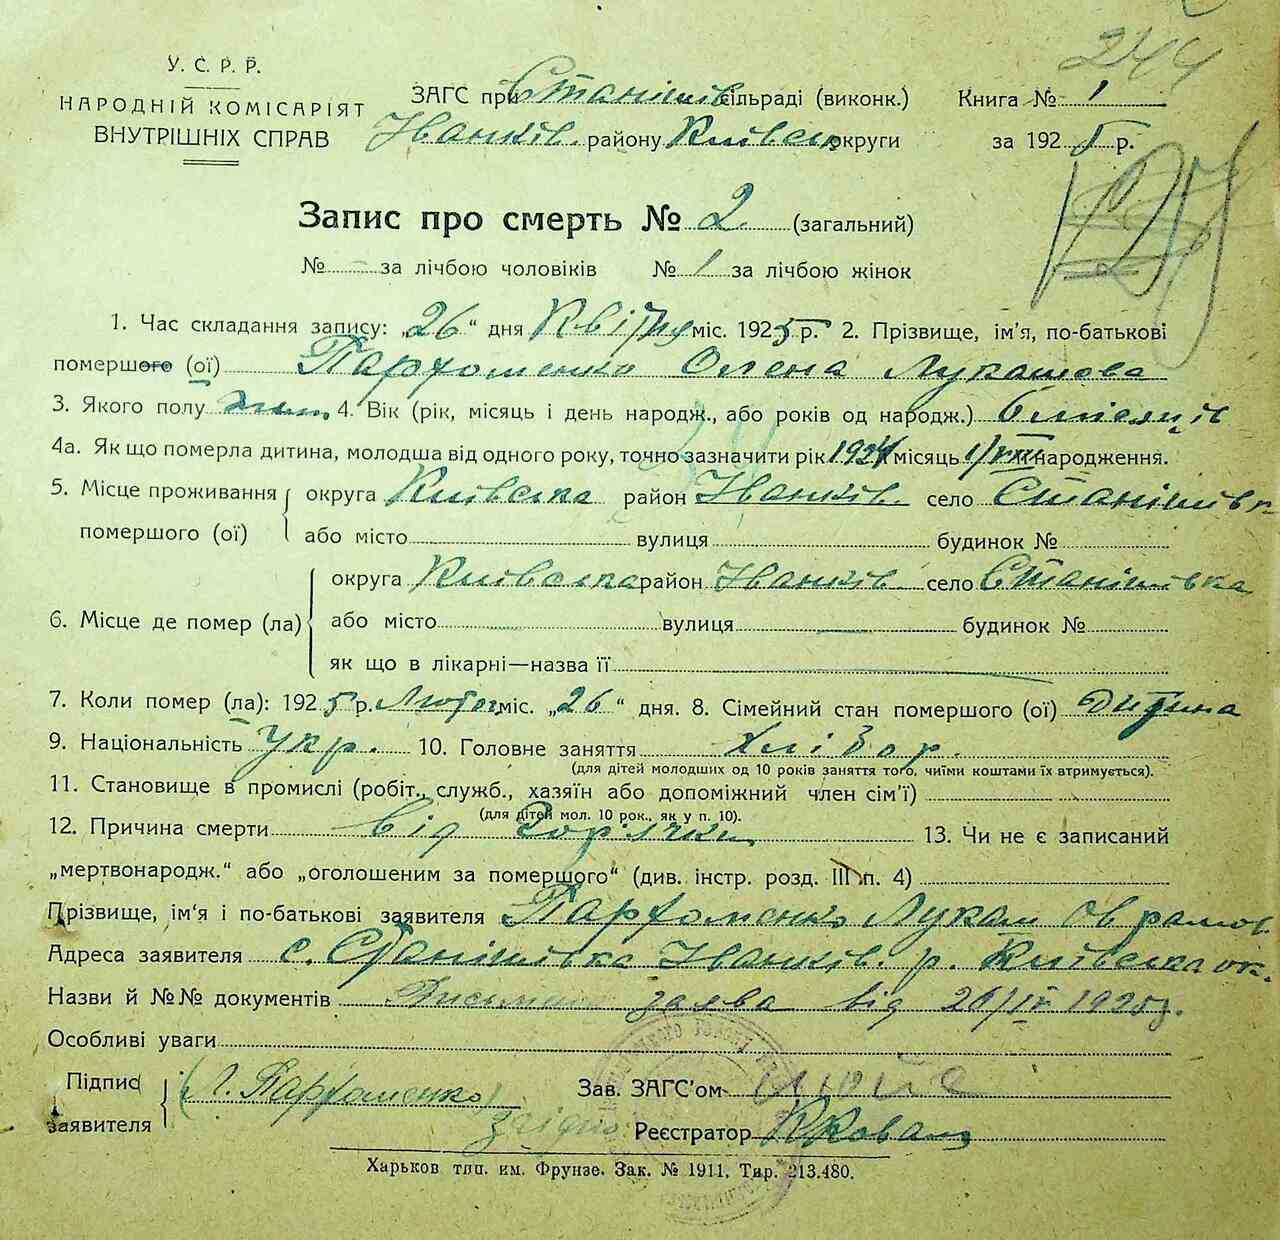 244
У. С. Р. Р.
НАРОДНІЙ КОМІСАРІЯТ
ВНУТРІШНІХ СПРАВ
ЗАГС при Станішів сільраді (виконк.)
Іванків. району Київськ округи
Книга № 1
за 1925 р.
Запис про смерть № 2 (загальний)
№ - за лічбою чоловіків № 1 за лічбою жінок
1. Час складання запису: „26“ дня Квітня міс. 1925 р. 2. Прізвище, ім'я, по-батькові
помершого (ої) Пархоменко Олена Лукашова
3. Якого полу жін. 4. Вік (рік, місяць і день народж., або років од народж.) 6 місяців
4а. Як що померла дитина, молодша від одного року, точно зазначити рік 1924 місяць 1/VIII народження.
5. Місце проживання округа Київська район Іванків. село Станішівк
помершого (ої) або місто вулиця будинок №
6. Місце де помер (ла) округа Київська район Іванків село Станішівка
або місто вулиця будинок №
як що в лікарні—назва її
7. Коли помер (ла): 1925 р. Лютого міс. „26“ дня. 8. Сімейний стан помершого (ої) Дитина
9. Національність Укр. 10. Головне заняття Хлібор.
(для дітей молодших од 10 років заняття того, чиїми коштами їх втримується).
11. Становище в промислі (робіт., служб., хазяїн або допоміжний член сім'ї)
(для дітей мол. 10 рок., як у п. 10).
12. Причина смерти від Горячки 13. Чи не є записаний
„мертвонародж.“ або „оголошеним за помершого“ (див. інстр. розд. III п. 4)
Прізвище, ім'я і по-батькові заявителя Пархоменко Лукаш Оврамов
Адреса заявителя с. Станішівка Іванків. р. Київська ок.
Назви й №№ документів Письмен заява від 26/IV 1925 р.
Особливі уваги
Підпис
заявителя
(Л. Пархоменко)
Зав. ЗАГС'ом
згідно
Реєстратор Коваль
Харьков тип. им. Фрунзе. Зак. № 1911. Тир. 213.480.